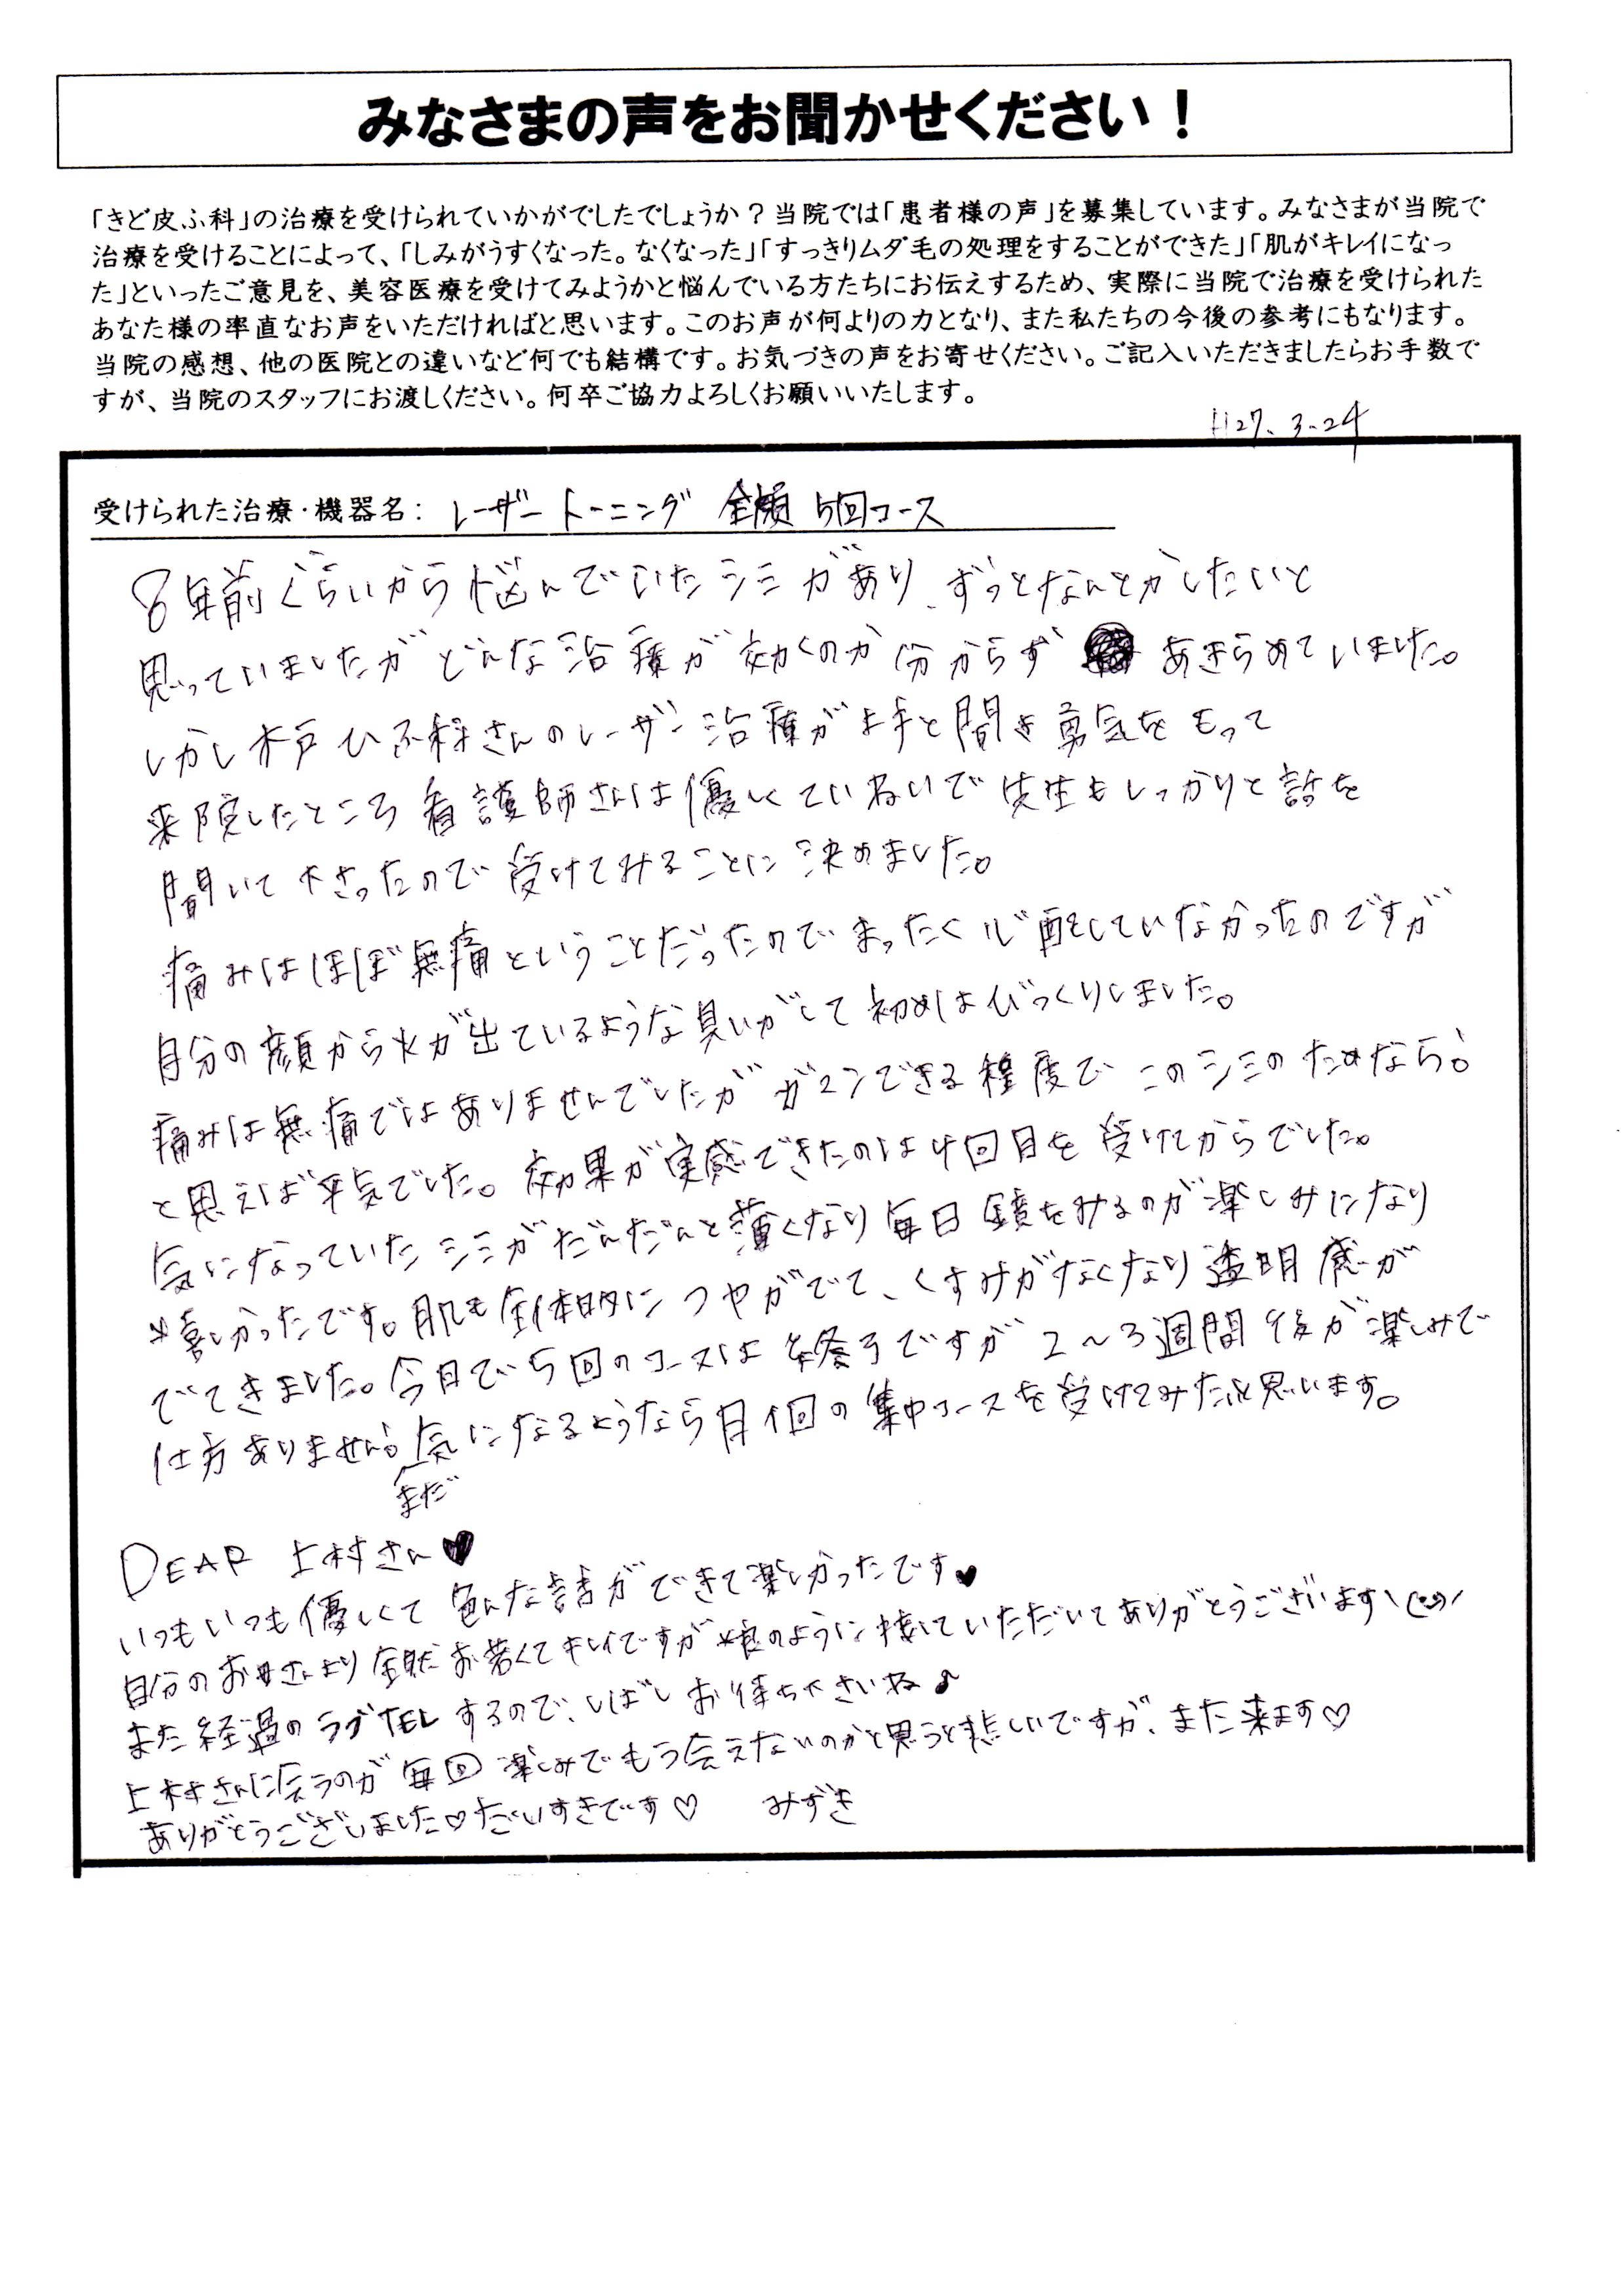 みなさまの声をお聞かせください！
「きど皮ふ科」の治療を受けられていかがでしたでしょうか？当院では「患者様の声」を募集しています。みなさまが当院で
治療を受けることによって、「しみがうすくなった。なくなった」「すっきりムダ毛の処理をすることができた」「肌がキレイになっ
た」といったご意見を、美容医療を受けてみようかと悩んでいる方たちにお伝えするため、実際に当院で治療を受けられた
あなた様の率直なお声をいただければと思います。このお声が何よりの力となり、また私たちの今後の参考にもなります。
当院の感想、他の医院との違いなど何でも結構です。お気づきの声をお寄せください。ご記入いただきましたらお手数で
すが、当院のスタッフにお渡しください。何卒ご協力よろしくお願いいたします。
H27.3.24
受けられた治療・機器名： レーザートーニング 全顔 5回コース
8年前ぐらいから悩んでいたシミがあり、ずっとなんとかしたいと
思っていましたがどんな治療が効くのか分からず あきらめていました。
しかし木戸ひふ科さんのレーザー治療が上手と聞き勇気をもって
来院したところ看護師さんは優しくていねいで先生もしっかりと話を
聞いて下さったので受けてみることに決めました。
痛みはほぼ無痛ということだったのでまったく心配していなかったのですが
自分の顔から火が出ているような臭いがして初めはびっくりしました。
痛みは無痛ではありませんでしたがガマンできる程度でこのシミのためなら！
と思えば平気でした。効果が実感できたのは4回目を受けてからでした。
気になっていたシミがだんだんと薄くなり毎日鏡をみるのが楽しみになり
嬉しかったです。肌も全体的につやがでて、くすみがなくなり透明感が
でてきました。今日で5回のコースは終了ですが2～3週間後が楽しみで
仕方ありません！気になるようなら月1回の集中コースを受けてみたいと思います。
まだ
DEAR 上村さん♥
いつもいつも優しくて色んな話ができて楽しかったです♥
自分のお母さんより全然お若くてキレイですが娘のように接していただいてありがとうございます
また経過のラブTELするので、しばしお待ち下さいね♪
上村さんに会うのが毎回楽しみでもう会えないのかと思うと悲しいですが、また来ます♡
ありがとうございました♡だいすきです♡ みずき